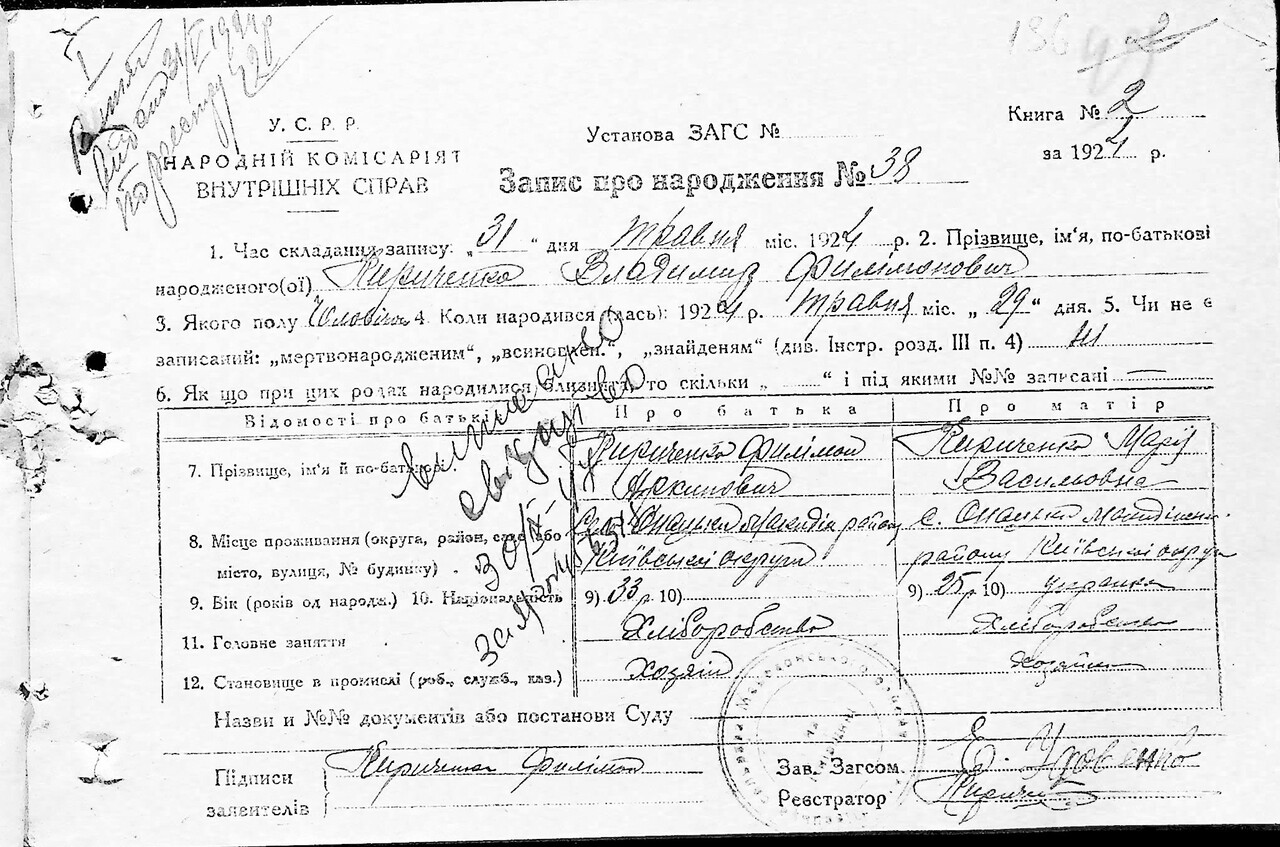 Книга № 2
за 1924 р.
У. С. Р. Р.
НАРОДНІЙ КОМІСАРІЯТ
ВНУТРІШНІХ СПРАВ
Установа ЗАГС №
Запис про народження № 38
1. Час складання запису: „31“ дня травня міс. 1924 р. 2. Прізвище, ім'я, по-батькові
народженого(ої) Кириченко Владимир Филімонович
3. Якого полу 4. Коли народився (лась): 1924 р. травня міс. „29“ дня. 5. Чи не є
записаний: „мертвонародженим“, „всиновлен.“, „знайденям“ (див. Інстр. розд. III п. 4) ні
6. Як що при цих родах народилися близнята, то скільки „ “ і під якими №№ записані —
Відомості про батьків Про батька Про матір
7. Прізвище, ім'я й по-батькові. Кириченко Филімон Кириченко Марія
Архипович Василовна
8. Місце проживання (округа, район, село або район с.
місто, вулиця, № будинку) . Київської округи району Київської округи
9. Вік (років од народж.) 10. Національність 9) 33 р 10) 9) 25 р 10) украинка
11. Головне заняття Хліборобство Хліборобство
12. Становище в промислі (роб., служб., хаз.) Хозяїн хозяйка
Назви и №№ документів або постанови Суду
Підписи Кириченко Филімон
заявителів
Зав. Загсом
Реєстратор
виписано
свидоцтво